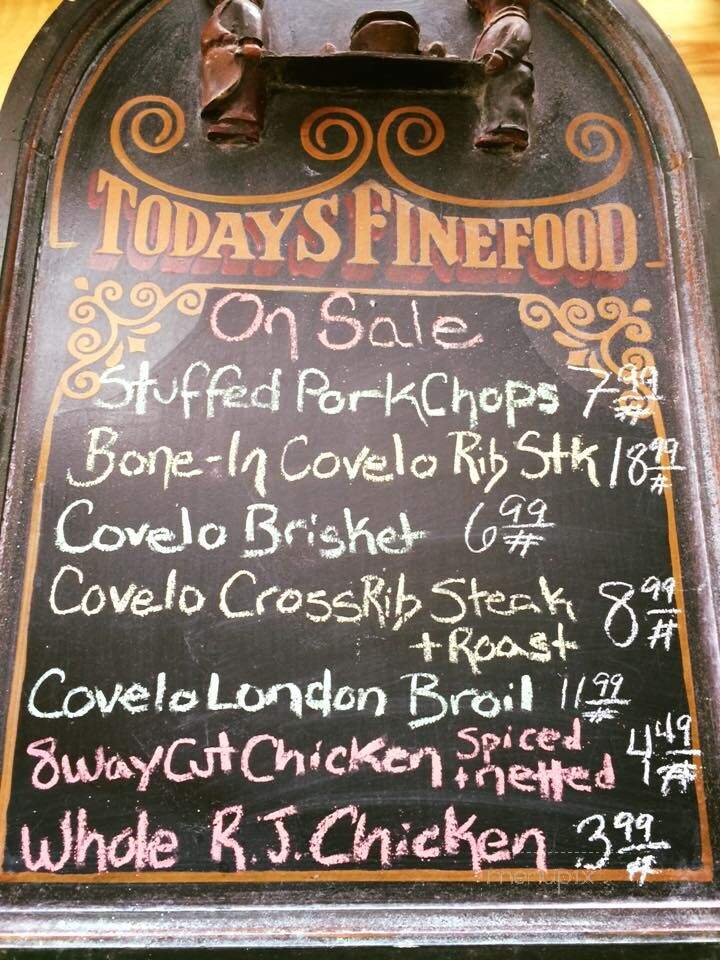 TODAYS FINEFOOD
On Sale
Stuffed Pork Chops 7 99/#
Bone-In Covelo Rib Stk 18 99/#
Covelo Brisket 6 99/#
Covelo Cross Rib Steak 8 99/#
+ Roast
Covelo London Broil 11 99/#
8 way Cut Chicken Spiced + netted 4 49/#
Whole R.J. Chicken 3 99/#
menupix